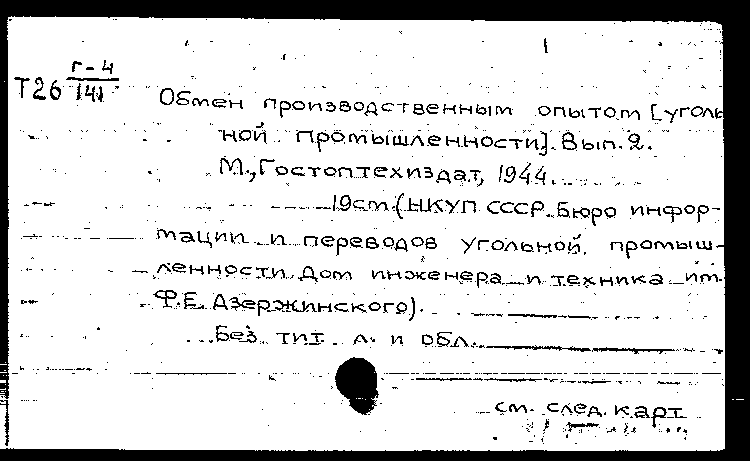 Т26 Г-4/141
Обмен производственным опытом [уголь
ной промышленности]. Вып. 2.
М., Гостоптехиздат, 1944.
19см. (НКУП СССР. Бюро инфор-
мации и переводов угольной промыш-
ленности. Дом инженера и техника им.
Ф.Е. Дзержинского).
Без тит. л. и обл.
см. след. карт